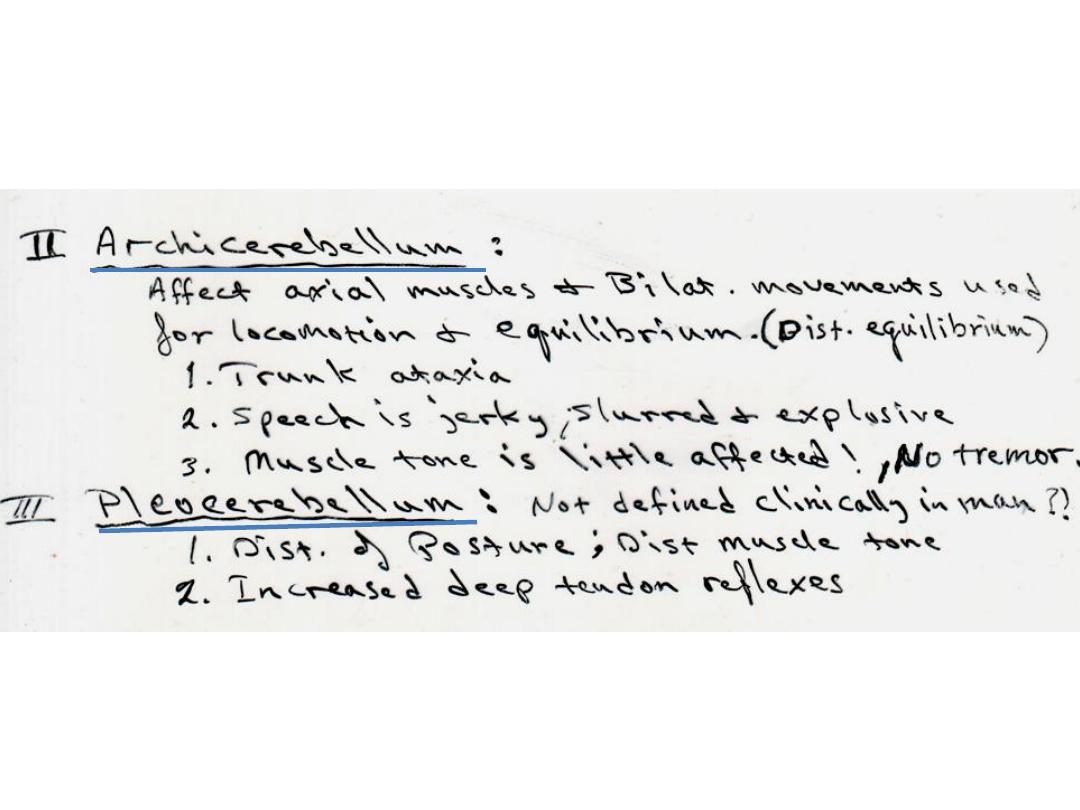 II Archicerebellum :
Affect axial muscles & Bilat. movements used
for locomotion & equilibrium. (Dist. equilibrium)
1. Trunk ataxia
2. Speech is jerky, slurred & explosive
3. Muscle tone is little affected!, No tremor.
III Pleocerebellum : Not defined clinically in man ?!
1. Dist. of Posture ; Dist muscle tone
2. Increased deep tendon reflexes